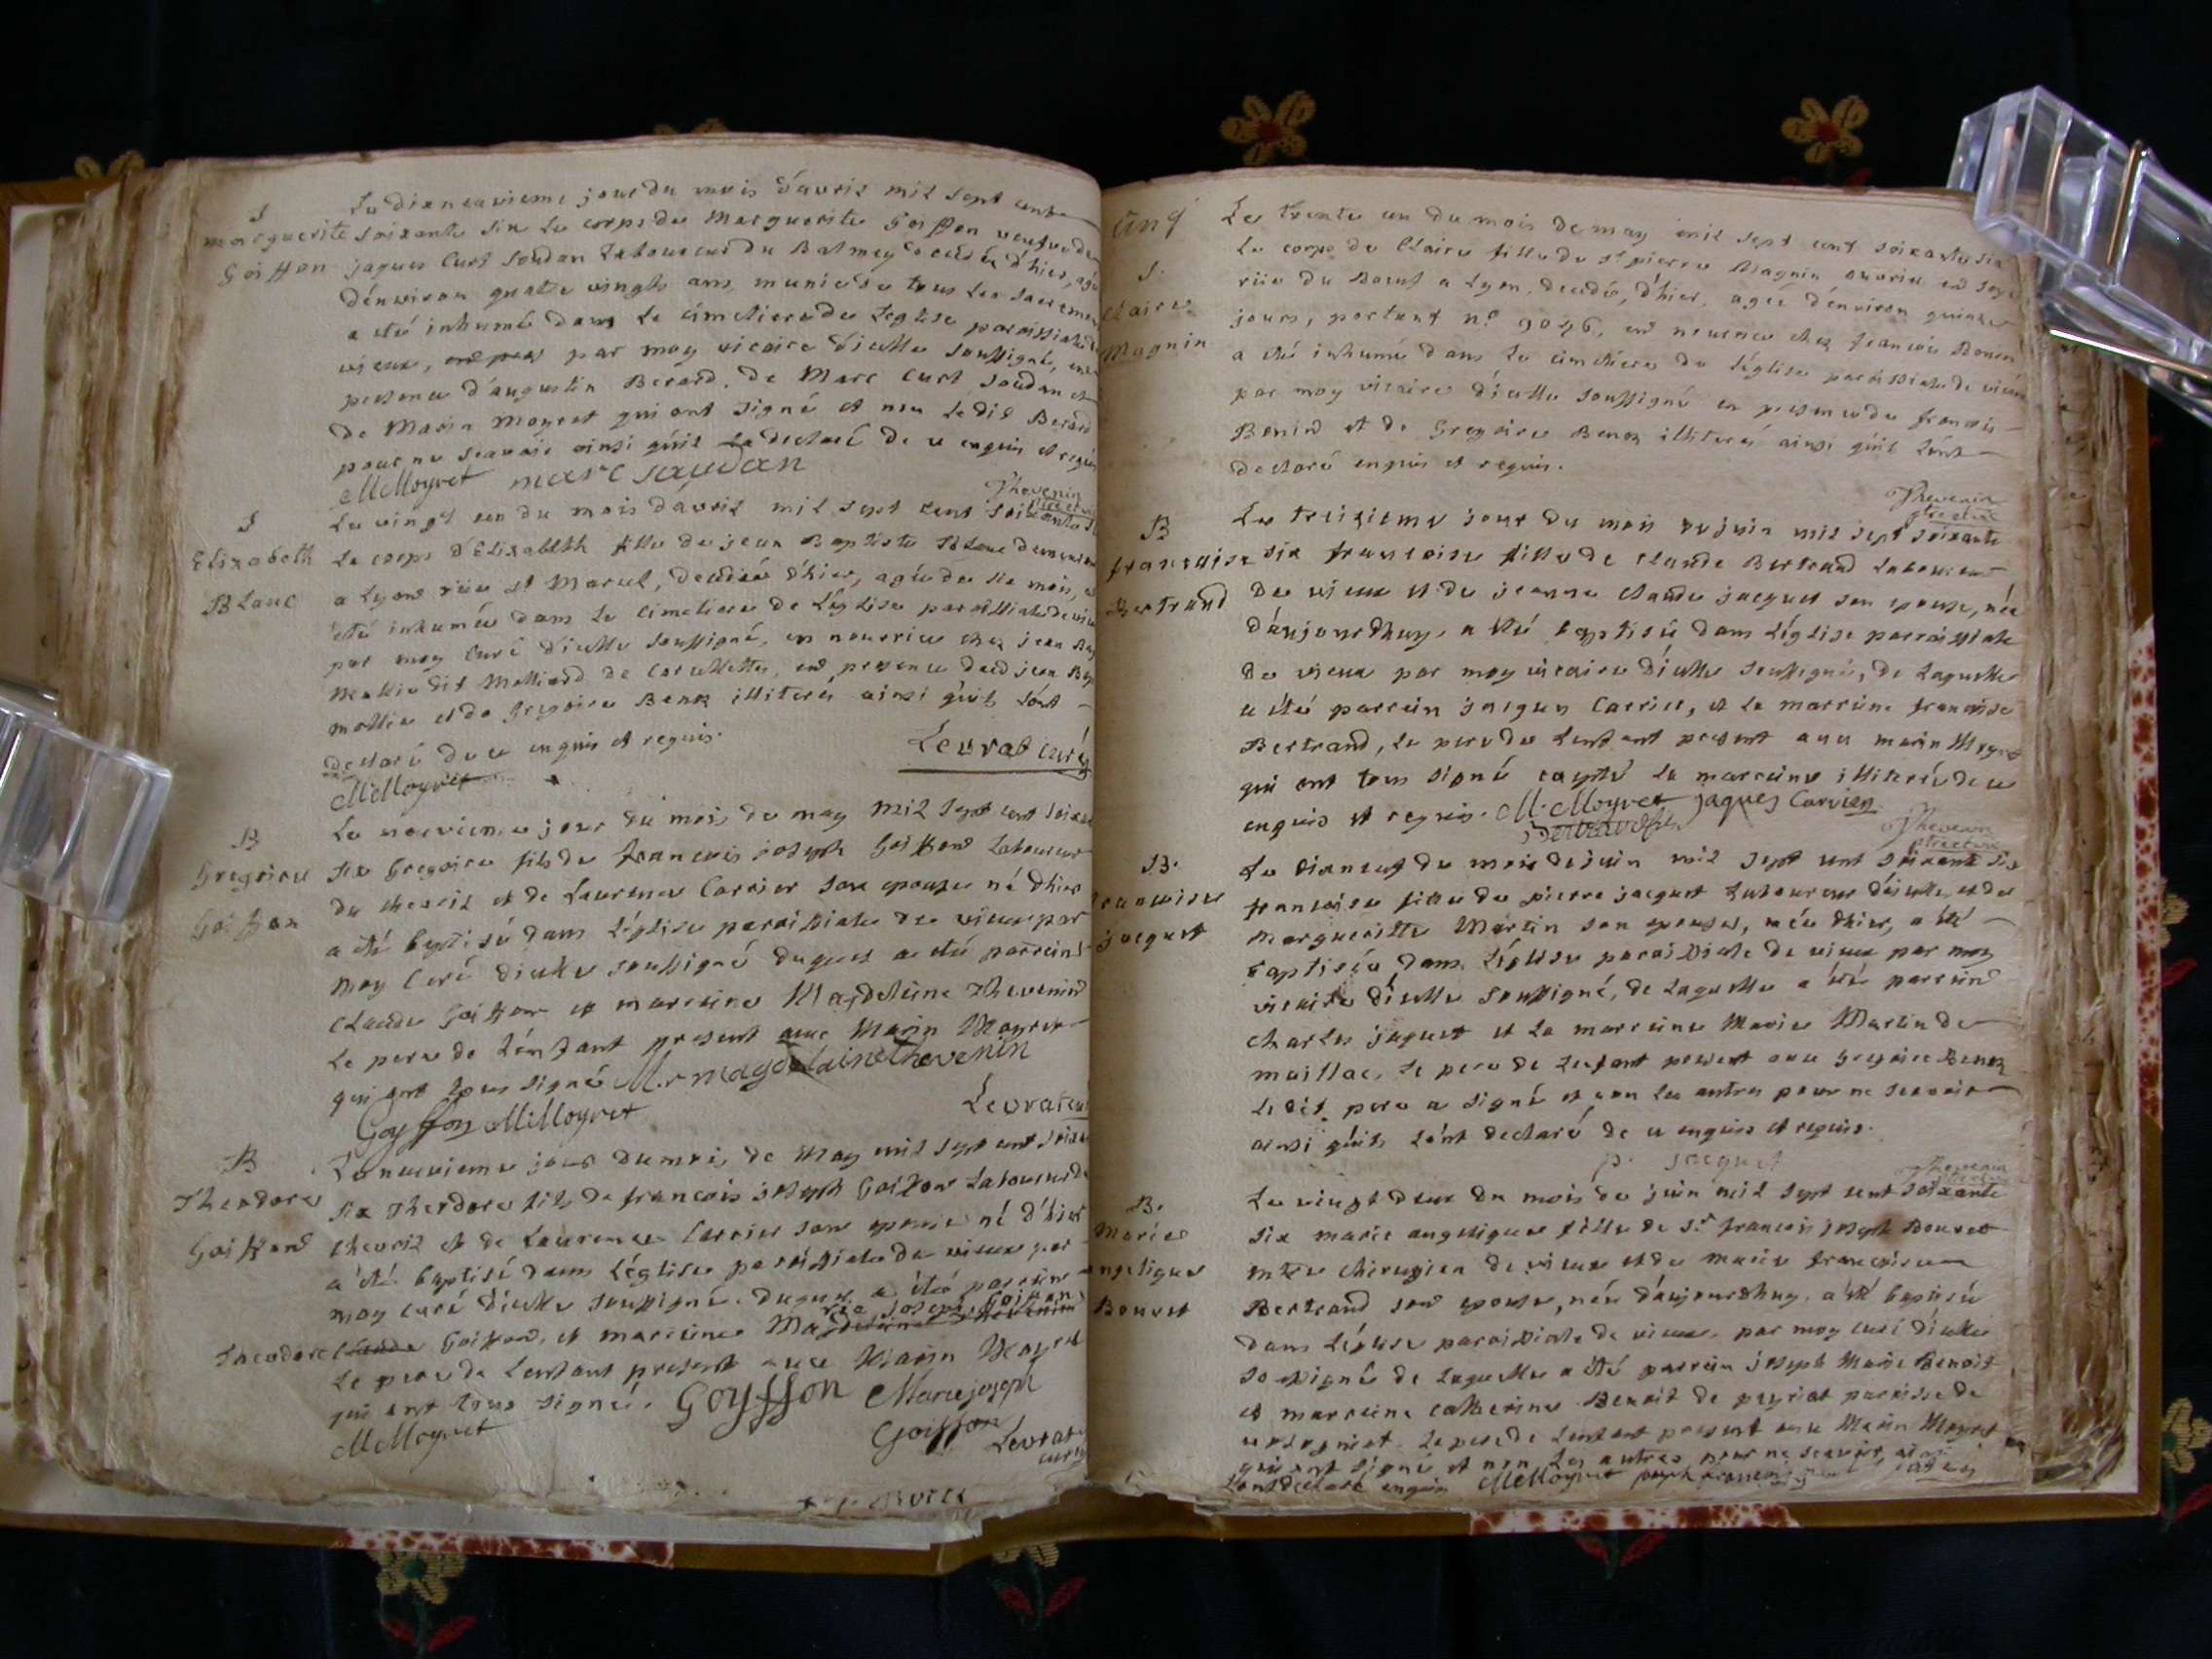 S
marguerite
Goiffon
Le dixneuvieme jour du mois d'avril mil sept cent
soixante six le corps de Marguerite Goiffon veufve de
jaques Curt Soudan Laboureur du Balmey decedée d'hier, agée
d'environ quatre vingts ans, munie de tous les sacremen
a été inhumé dans le cimetiere de L'eglise paroissiale de
vieux, par moy vicaire d'icelle soussigné, en
presence d'augustin Berard, de Marc Curt Soudan et
de Marin Moyret qui ont signé et non Ledit Berard
pour ne scavoir ainsi qu'il La declaré de ce enquis et requis
M Moyret marc saudan
Thevenin
S
Elizabeth
Blanc
Le vingt un du mois d'avril mil sept cent soixante s
Le corps d'Elizabeth fille de jean Baptiste Blanc
a Lyon rüe st Marcel, decedée d'hier, agée de six mois, a
été inhumée dans le cimetiere de L'église paroissiale de vieu
par moy curé d'icelle soussigné, en nourrice chez jean Bap
Mollie dit Molliard de Corcelette, en presence dud jean Bap
mollie et de Gregoire Benez illiterés ainsi qu'ils L'ont
declaré de ce enquis et requis.
M Moyret
Levrat curé
B
Gregoire
Goiffon
Le neuvieme jour du mois de may mil sept cent soixan
six Gregoire fils de francois joseph Goiffon Laboureur
du chevril et de Laurence Carrier son epouse né d'hier
a été baptisé dans L'église paroissiale de vieux par
moy curé d'icelle soussigné duquel a été parrein
Claude Goiffon et marreine Magdeleine Thevenin
Le pere de L'enfant present avec Marin Moyret
qui ont tous signé M. magdelaine thevenin
Goyffon M Moyret
Levrat cu
B
Theodore
Goiffon
Le neuvieme jour du mois de May mil sept cent soixa
six Theodore fils de francois joseph Goiffon Laboureur du
chevril et de Laurence Carrier son epouse né d'hier
a été baptisé dans L'église paroissiale de vieux par
moy curé d'icelle soussigné. duquel a été parrein
rie joseph Goiffon
Theodore Claude Goiffon, et marreine Magdeleine thevenin
Le pere de L'enfant present avec Marin Moyret
qui ont tous signé. Goyffon Marie joseph
M Moyret Goiffon Levrat
curé
cinq
S.
Claire
Magnin
Le trente un du mois de may mil sept cent soixante six
Le corps de Claire fille de Sr pierre Magnin ouvrier en soye
rüe du Boeuf a Lyon, decedée, d'hier, agée d'environ quinze
jours, portant n.o 9046, en nourrice chez francois Bonin
a été inhumé dans le cimetiere de L'église paroissiale de vieux
par moy vicaire d'icelle soussigné en presence de francois
Bonin et de Gregoire Benez illiterés ainsi qu'ils L'ont
declaré enquis et requis.
Thevenin
B
francoise
Bertrand
Le treizieme jour du mois de juin mil sept soixante
six francoise fille de Claude Bertrand Laboureur
de vieux et de jeanne claude jacquet son epouse, née
d'aujourdhuy, a été baptisée dans L'église parroissiale
de vieux par moy vicaire d'icelle soussigné, de Laquelle
a été parrein jacques Carrier, et La marreine francoise
Bertrand, Le pere de L'enfant present avec marin Moyret
qui ont tous signé excepté La marreine illiterée de ce
enquis et requis. M. Moyret jaques Carrien
Thevenin
B.
francoise
jacquet
Le dixneuf du mois de juin mil sept cent soixante six
francoise fille de pierre jacquet Laboureur d'icelle et de
Margueritte Martin son epouse, née d'hier, a été
baptisée dans L'église paroissiale de vieux par moy
vicaire d'icelle soussigné, de Laquelle a été parrein
charles jaquet et La marreine Marie Martin de
maillac, Le pere de L'enfant present avec Gregoire Benez
Ledit pere a signé et non Les autres pour ne scavoir
ainsi qu'ils L'ont declaré de ce enquis et requis.
p. jacquet
Thevenin
B.
Marie
angelique
Bouvet
Le vingt deux du mois de juin mil sept cent soixante
six marie angelique fille de S.r francois joseph Bouvet
mtre chirurgien de vieux et de marie francoise
Bertrand son epouse, née d'aujourdhuy, a été baptisée
dans L'église paroissiale de vieux, par moy curé d'icelle
soussigné de Laquelle a été parrein joseph Marie Benoit
et marreine catherine Benoit de peyriat paroisse de
Le pere de L'enfant present avec Marin Moyret
qui ont signé et non Les autres pour ne scavoir, ainsi
L'ont declaré enquis M Moyret